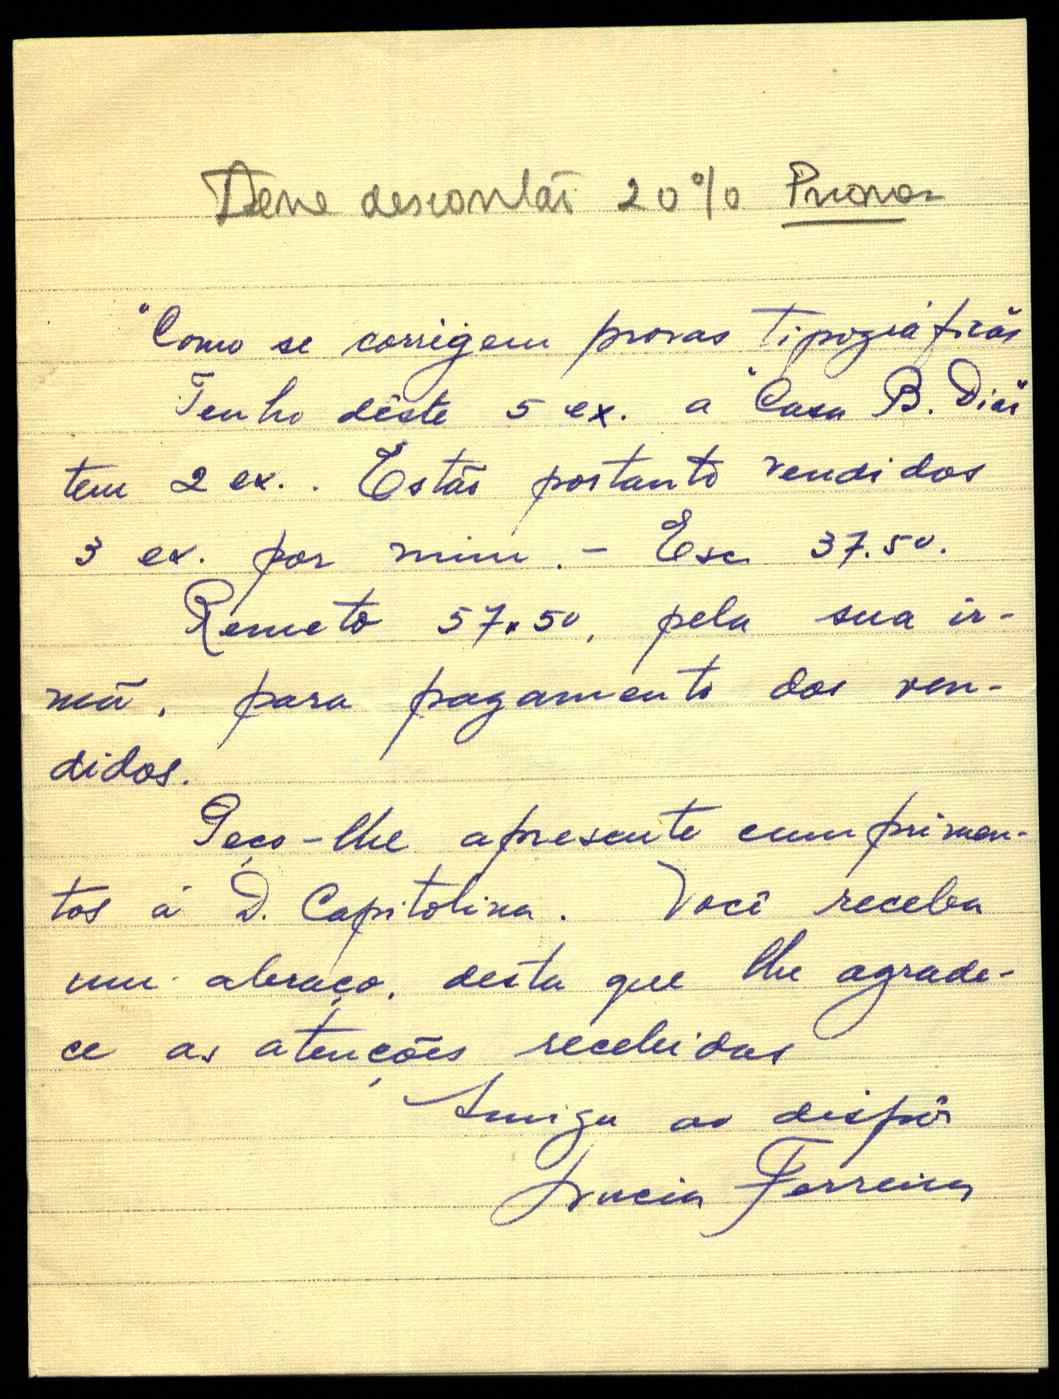 Deve descontar 20% Provas
"Como se corrigem provas tipográficas
Tenho dêste 5 ex. a "Casa B. Dias"
tem 2 ex.. Estão portanto vendidos
3 ex. por mim. – Esc 37.50.
Remeto 57.50, pela sua ir-
mã, para pagamento dos ven-
didos.
Peço-lhe apresente cumprimen-
tos á D. Capitolina. Você receba
um abraço, desta que lhe agrade-
ce as atenções recebidas
Amiga ao dispôr
Ferreira